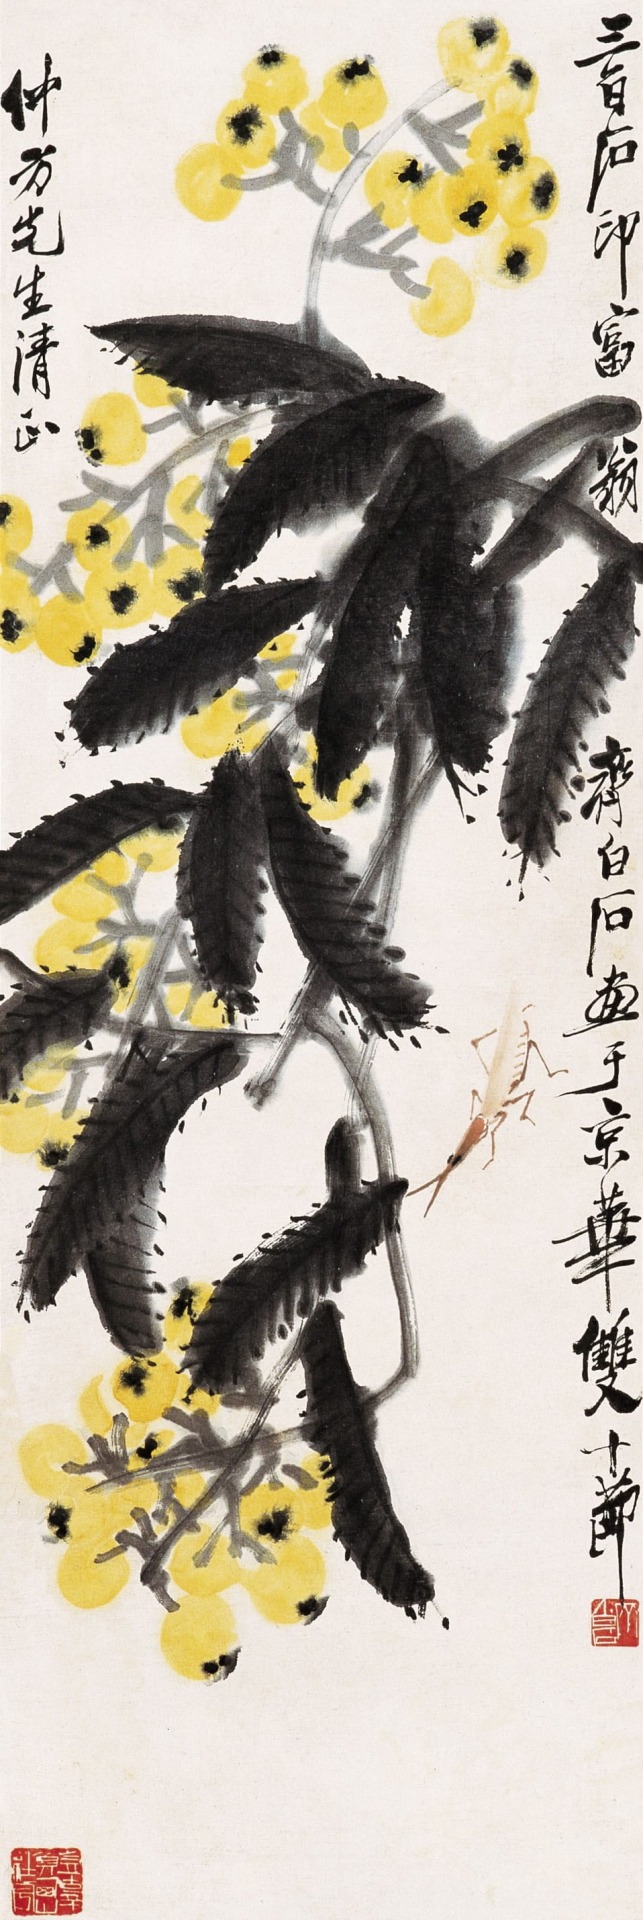 三百石印富翁齊白石画于京華雙十節
仲方先生清正
白石